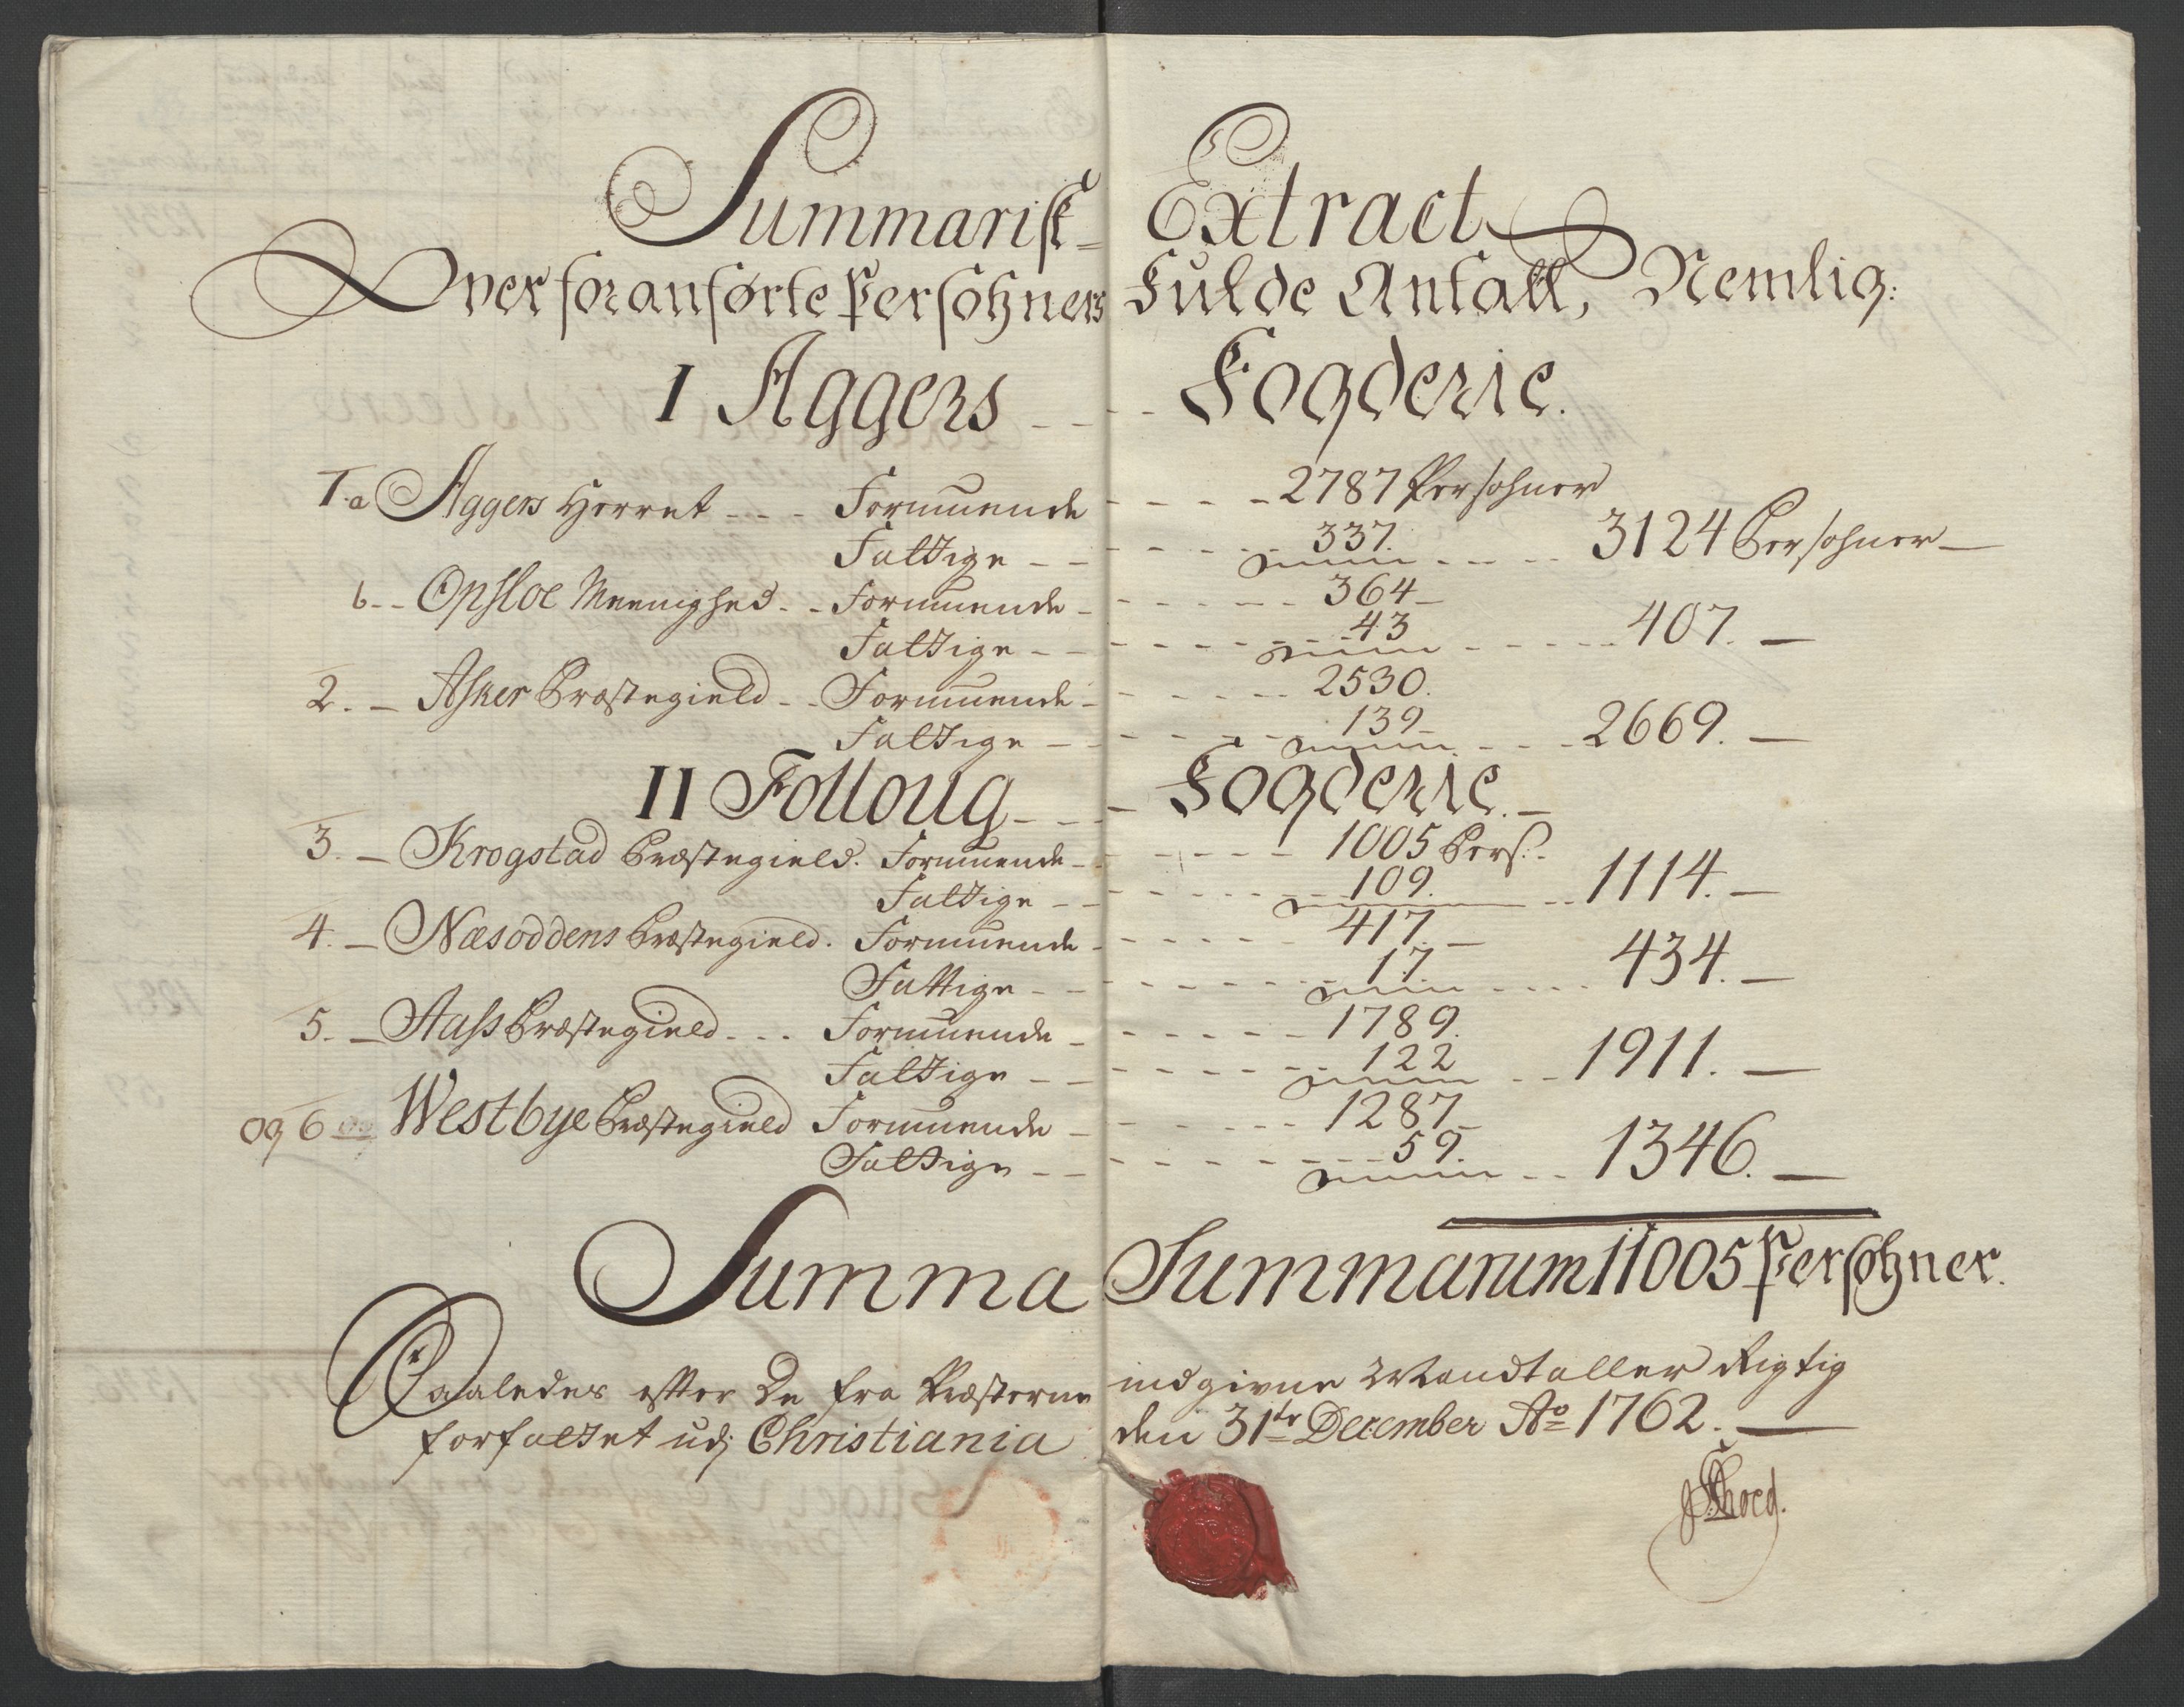 Summarisk = Extract
Over foranførte Persohners Fulde Antall, Nemlig:
I Aggers - - - Fogderie.
1.a Aggers Herret - - - Formuende - - - - 2787 Persohner
Fattige - - - - - - 337. - - - - 3124 Persohner —
b - - Opsloe Meenighed - - Formuende - - - - - - 364 —
Fattige - - - - - - 43 - - - - - 407. —
2. — Asker Præstegield - - Formuende - - - - - 2530.
Fattige - - - - - - 139 - - - - 2669. —
II Folloug - - - Fogderie. —
3. — Krogstad Præstegield. Formuende - - - - - 1005 Pers:
Fattige - - - - - - 109. - - 1114. —
4. — Næsoddens Præstegield. Formuende - - - - - 417. —
Fattige - - - - - - 17. - - - - 434. —
5. — Aass Præstegield - - - Formuende - - - - - 1789.
Fattige - - - - - - 122 - - 1911. —
og 6 Westbye Præstegield Formuende - - - - - 1287
Fattige - - - - - - 59. - - 1346. —
Summa Summarum 11005 Persohner.
Saaledes efter De fra Præsterne indgivne Mandtaller Rigtig
forfattet udj Christiania den 31te December Ao 1762. —